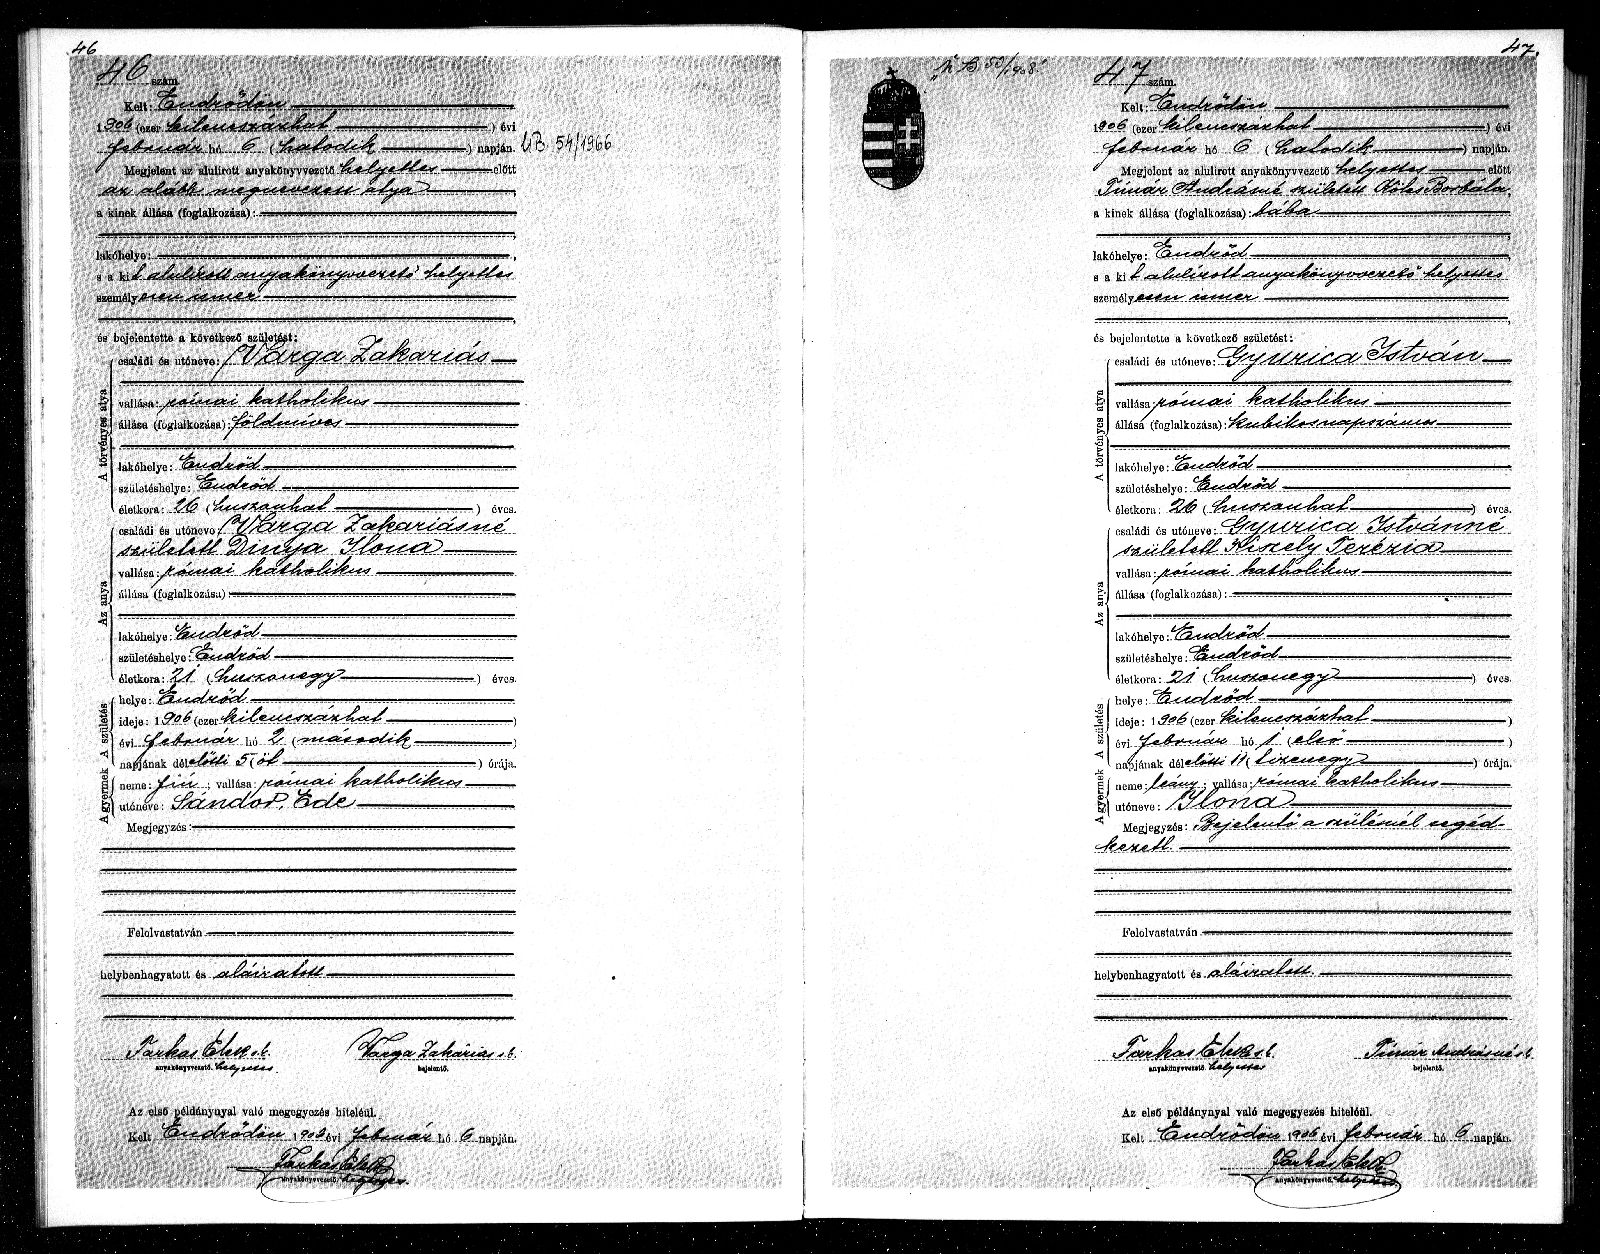 46
46 szám.
Kelt: Endrődön
1906 (ezer kilencszázhat) évi
február hó 6 (hatodik) napján.
U.B. 54/1966
Megjelent az alulirott anyakönyvvezető helyettes előtt
az alább megnevezett atya,
a kinek állása (foglalkozása):
lakóhelye:
s a kit alulírott anyakönyvvezető helyettes
személyesen ismer
és bejelentette a következő születést:
A törvényes atya
családi és utóneve: Varga Zakariás
vallása: római katholikus
állása (foglalkozása): földmíves
lakóhelye: Endrőd
születéshelye: Endrőd
életkora: 26 (huszonhat) éves.
Az anya
családi és utóneve: Varga Zakariásné
született Dinya Ilona
vallása: római katholikus
állása (foglalkozása):
lakóhelye: Endrőd
születéshelye: Endrőd
életkora: 21 (huszonegy) éves.
A születés
helye: Endrőd
ideje: 1906 (ezer kilencszázhat)
évi február hó 2 (második)
napjának délelőtti 5 (öt) órája.
A gyermek
neme: fiú; vallása: római katholikus
utóneve: Sándor, Ede
Megjegyzés:
Felolvastatván
helybenhagyatott és aláíratott.
Farkas Elek s.k. Varga Zakárias s.k.
anyakönyvvezető. helyettes bejelentő.
Az első példánynyal való megegyezés hiteléül.
Kelt Endrődön 1906 évi február hó 6 napján.
Farkas Elek
anyakönyvvezető. helyettes.
47.
50/1908.
47 szám.
Kelt: Endrődön
1906 (ezer kilencszázhat) évi
február hó 6 (hatodik) napján.
Megjelent az alulirott anyakönyvvezető helyettes előtt
Timár Andrásné született Kólos Borbála,
a kinek állása (foglalkozása): bába
lakóhelye: Endrőd
s a kit alulírott anyakönyvvezető helyettes
személyesen ismer
és bejelentette a következő születést:
A törvényes atya
családi és utóneve: Gyurica István
vallása: római katholikus
állása (foglalkozása): kubikosnapszámos
lakóhelye: Endrőd
születéshelye: Endrőd
életkora: 26 (huszonhat) éves.
Az anya
családi és utóneve: Gyurica Istvánné
született Kiszely Terézia
vallása: római katholikus
állása (foglalkozása):
lakóhelye: Endrőd
születéshelye: Endrőd
életkora: 21 (huszonegy) éves.
A születés
helye: Endrőd
ideje: 1906 (ezer kilencszázhat)
évi február hó 1 (első)
napjának délelőtti 11 (tizenegy) órája.
A gyermek
neme: leány; vallása: római katholikus
utóneve: Ilona
Megjegyzés: Bejelentő a szülésnél segéd-
kezett.
Felolvastatván
helybenhagyatott és aláíratott.
Farkas Elek s.k. Timár Andrásné s.k.
anyakönyvvezető. helyettes bejelentő.
Az első példánynyal való megegyezés hiteléül.
Kelt Endrődön 1906 évi február hó 6 napján.
Farkas Elek
anyakönyvvezető. helyettes.